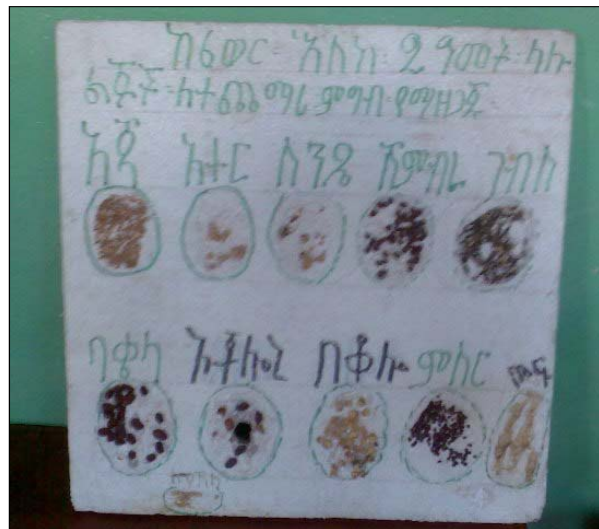 ከ6 ወር እስከ 2 ዓመት ላሉ
ልጆች ለተጨማሪ ምግብ የሚዘጋጅ
አጃ አተር ስንዴ ሽምብራ ገብስ
ባቄላ ኦቾሎኒ በቆሎ ምስር ጤፍ